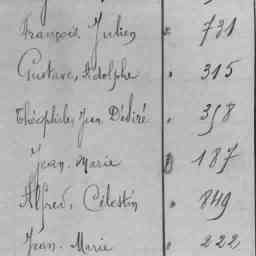 François Julien " 731
Gustave, Adolphe " 315
Théophile, Jean Désiré " 358
Jean-Marie " 187
Alfred, Célestin " 849
Jean-Marie " 222